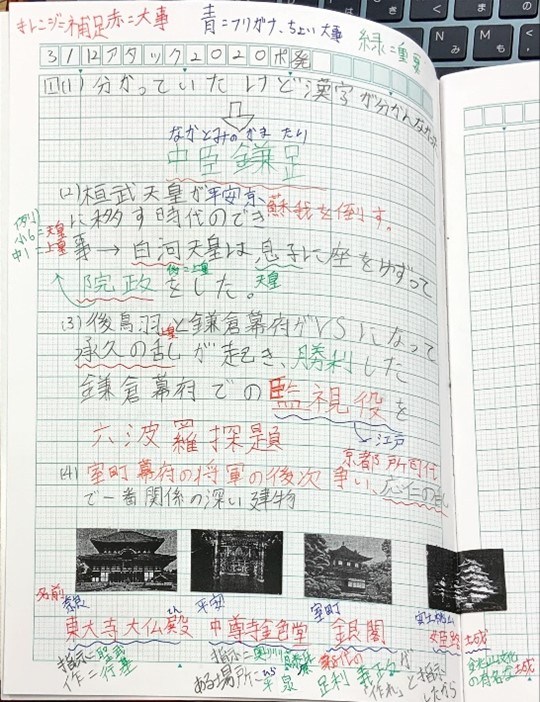 オレンジ=補足 赤=大事
青=フリガナ、ちょい大事
緑=重要
3/12アタック2020ポ発
四(1)分かっていたけど漢字が分かんなかった
なかとみの かまたり
中臣鎌足
蘇我を倒す。
(2)桓武天皇が平安京
に移す時代のでき
事→白河天皇は息子に座をゆずって
天皇
院政をした。
(3)後鳥羽と鎌倉幕府がVSになって
上皇
承久の乱が起き、勝利した
鎌倉幕府での監視役を
→江戸
六波羅探題
京都所司代
(4)室町幕府の将軍の後次争い、応仁の乱
で一番関係の深い建物
名前
奈良
東大寺大仏殿
平安
中尊寺金色堂
室町
銀閣
安土桃山
姫路城
指示=聖武
作=行基
指示=奥州藤原
ある場所=平泉
足利義政が
「作れ」と指示
したから
の有名な城